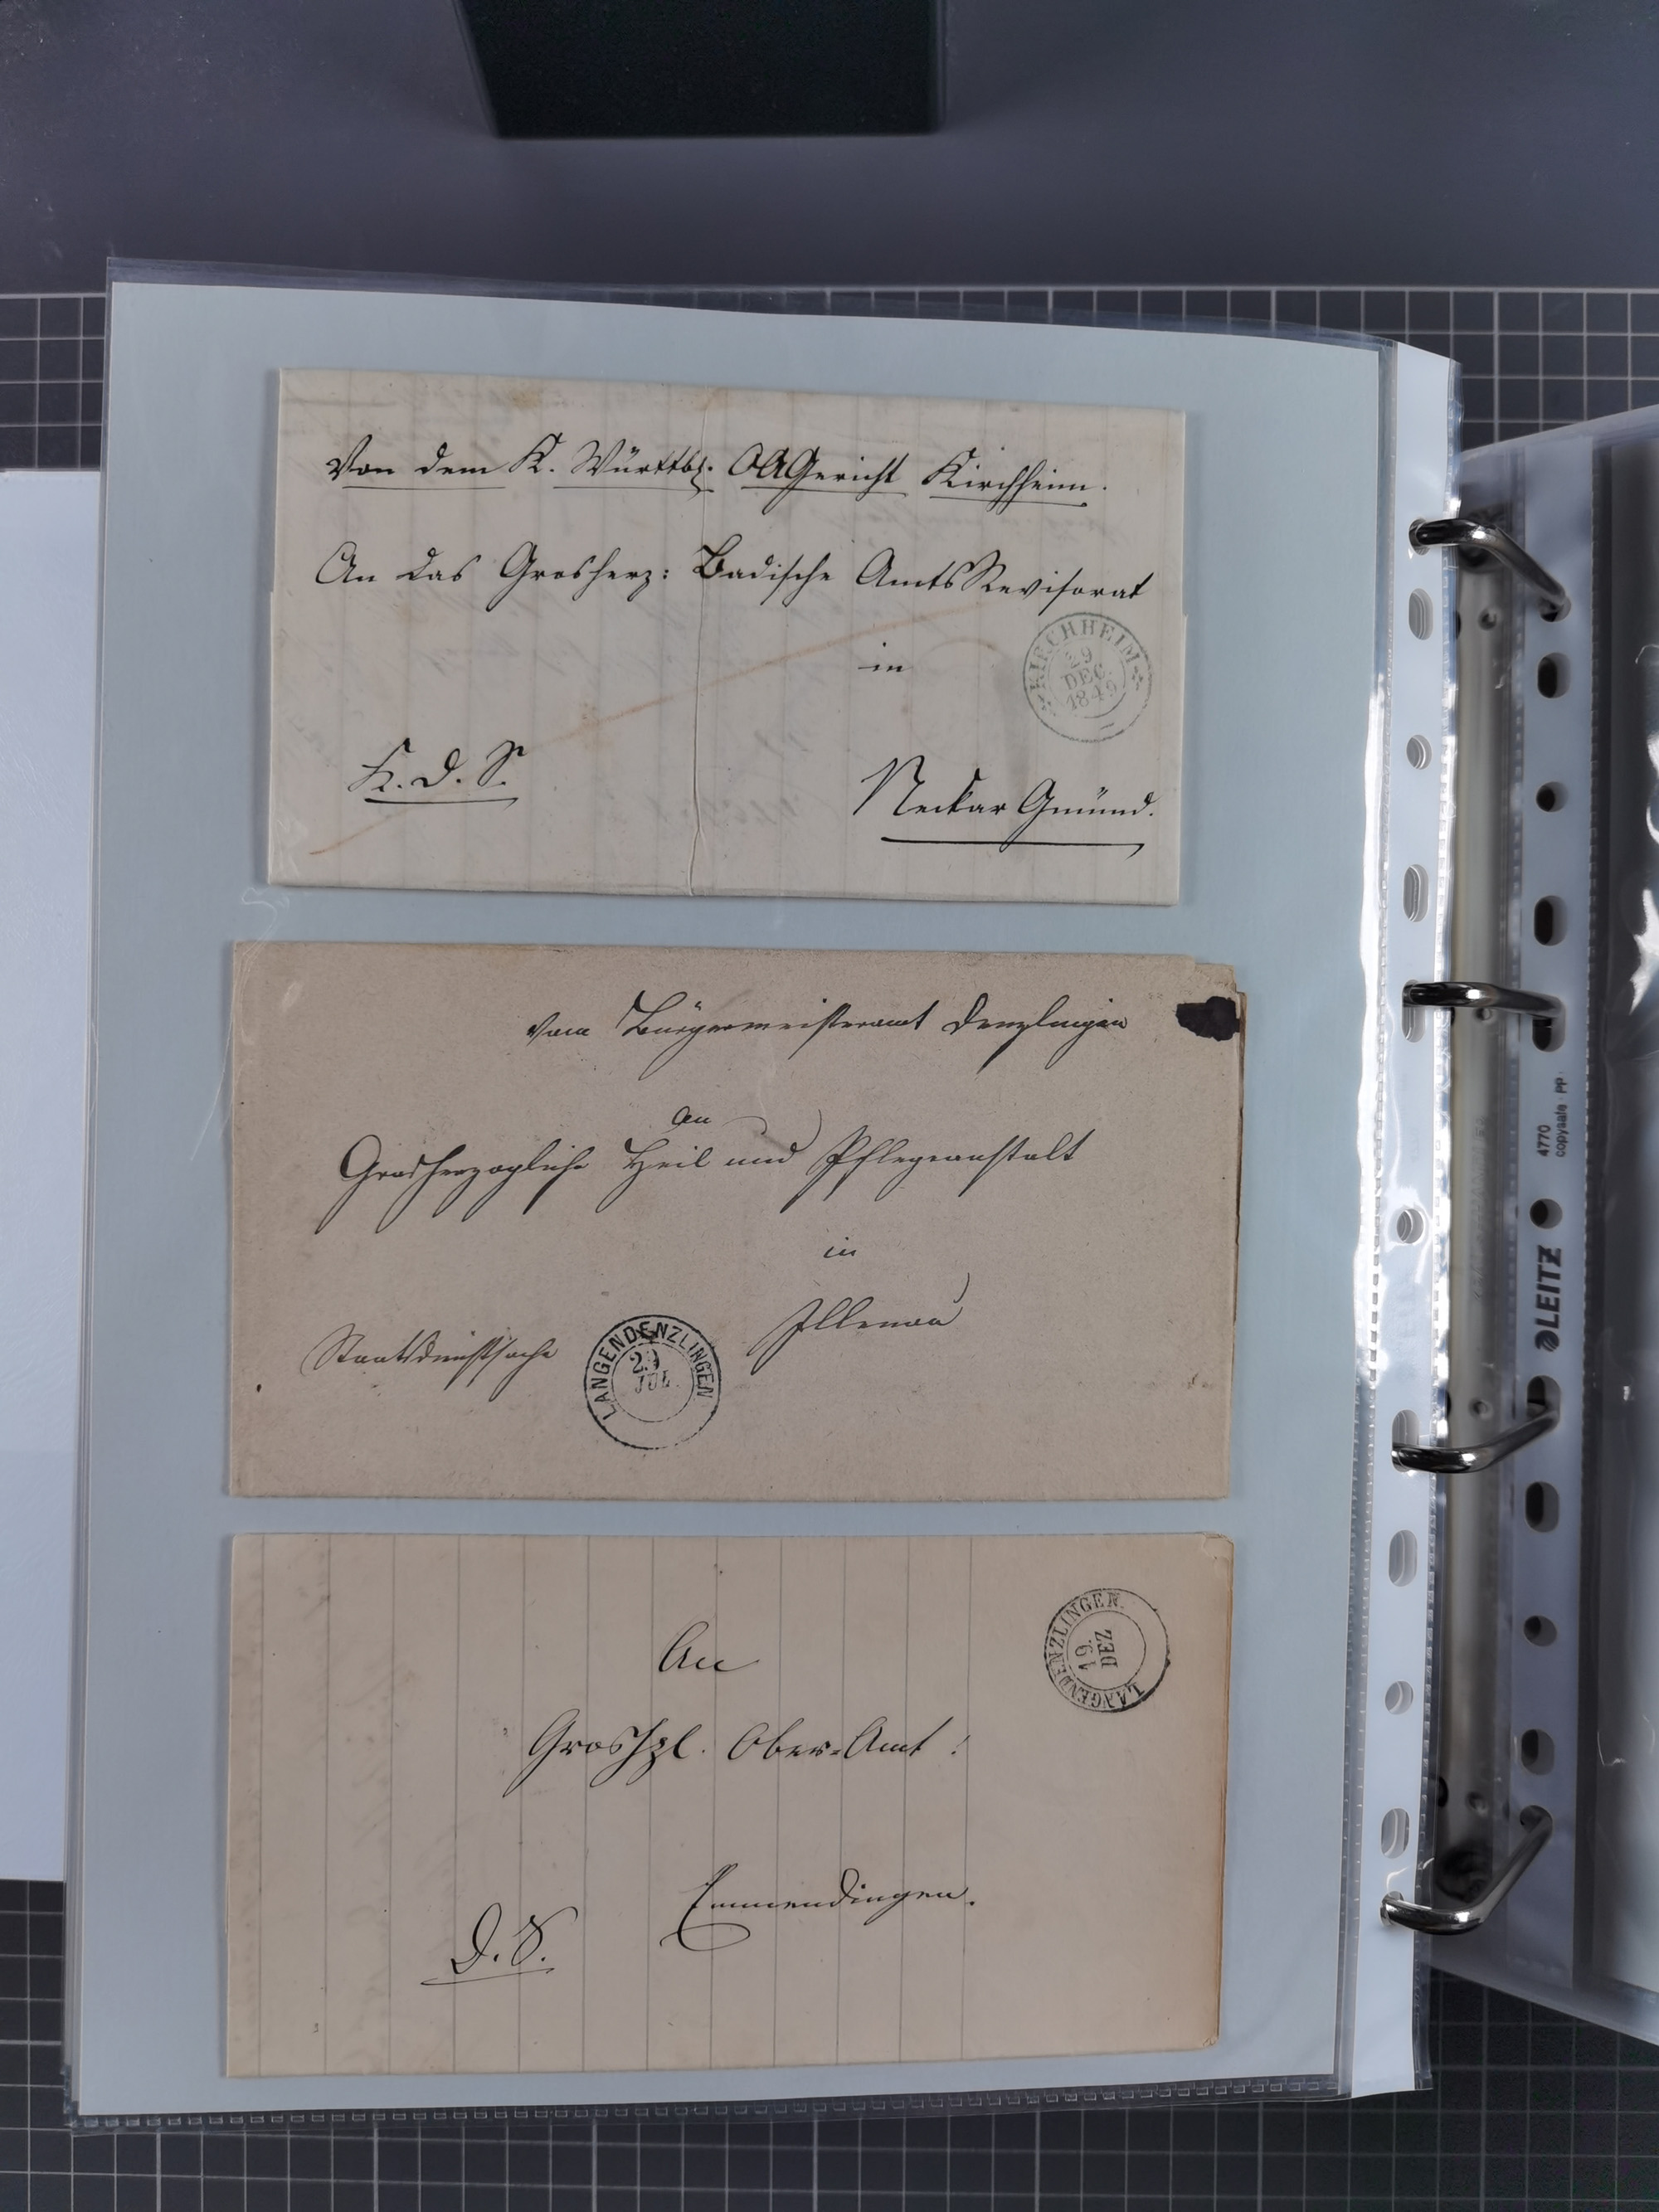 Von dem K. Württbg. OAGericht Kirchheim.
An das Grosherz: Badische AmtsRevisorat
in
KIRCHHEIM
29
DEC
1849
K. D. S.
Neckar Gmünd.
Vom Bürgermeisteramt Denzlingen
An
Grosherzogliche Heil und Pflegeanstalt
in
Illenau
Staatsdienstsache
LANGENDENZLINGEN
23
JUL
LANGENDENZLINGEN
19
DEZ
An
Groshzl. Ober-Amt!
Emmendingen.
D. S.
4770
copysafe PP
LEITZ